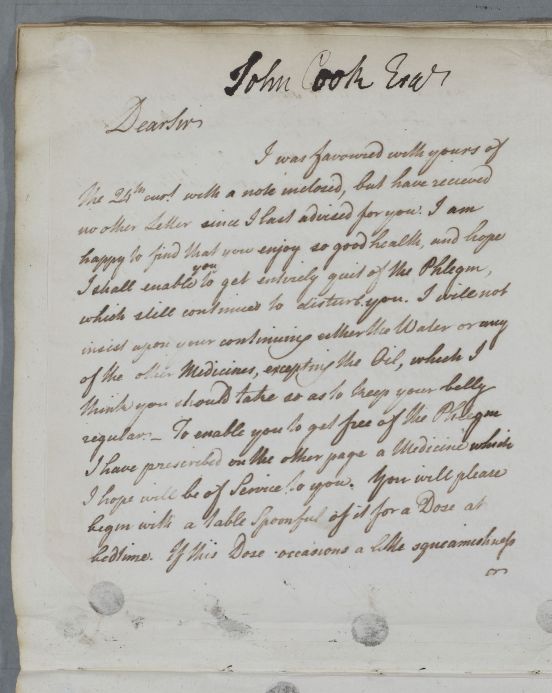 John Cook Esqr
Dear Sir
I was favoured with yours of
the 24th curt. with a note inclosed, but have recieved
no other Letter since I last advised for you. I am
happy to find that you enjoy so good health, and hope
I shall enable you to get entirely quit of the Phlegm,
which still continues to disturb you. I will not
insist upon your continuing either the Water or any
of the other Medicines, excepting the Oil, which I
think you should take so as to keep your belly
regular. – To enable you to get free of the Phlegm
I have prescribed on the other page a Medicine which
I hope will be of Service to you. You will please
begin with a table Spoonful of it for a Dose at
bedtime. If this Dose occasions a little squeamishness
or